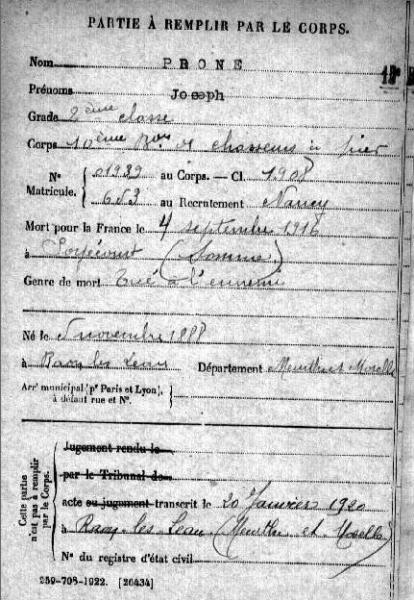 PARTIE À REMPLIR PAR LE CORPS.
Nom PRONE
Prénoms Joseph
Grade 2ème classe
Corps 10ème Bon de chasseurs à pied
N° Matricule. { 01939 au Corps. — Cl. 1908
653 au Recrutement Nancy
Mort pour la France le 4 septembre 1916
à (Somme)
Genre de mort Tué à l'ennemi
Né le 5 novembre 1888
à Raon les Leau Département Meurthe et Moselle
Arrt municipal (pr Paris et Lyon), à défaut rue et N°.
Cette partie n'ont pas à remplir par le Corps.
Jugement rendu le
par le Tribunal de
acte ou jugement transcrit le 20 Janvier 1920
à Raon-les-Leau (Meurthe et Moselle)
N° du registre d'état civil
259-708-1922. [26434]